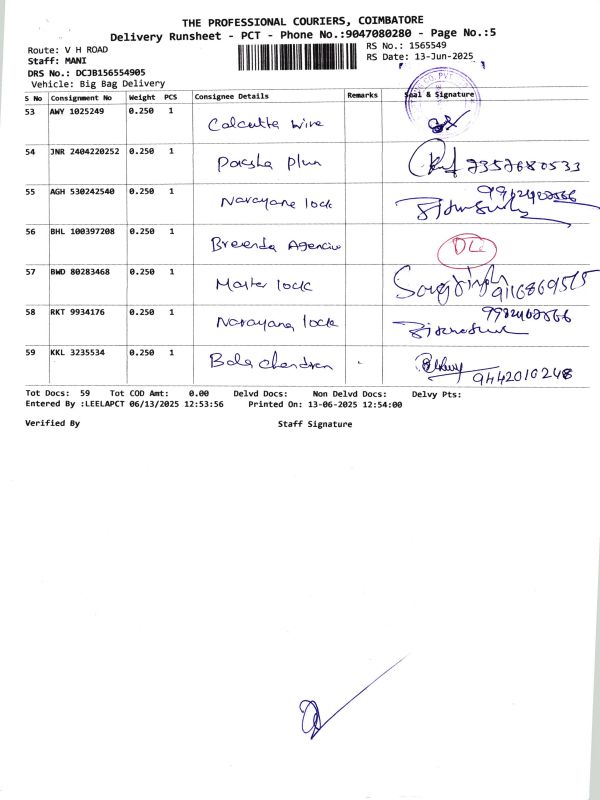 THE PROFESSIONAL COURIERS, COIMBATORE
Delivery Runsheet - PCT - Phone No.:9047080280 - Page No.:5
Route: V H ROAD
RS No.: 1565549
Staff: MANI
RS Date: 13-Jun-2025
DRS No.: DCJB156554905
Vehicle: Big Bag Delivery
S No Consignment No Weight PCS Consignee Details Remarks Seal & Signature
53 AWY 1025249 0.250 1 Calcutta wire
54 JNR 2404220252 0.250 1 Paksha plun 7357680533
55 AGH 530242540 0.250 1 Narayana lock
56 BHL 100397208 0.250 1 Agencies
57 BWD 80283468 0.250 1 Master lock
58 RKT 9934176 0.250 1 Narayana lock
59 KKL 3235534 0.250 1 Bala chandran 9442010248
Tot Docs: 59 Tot COD Amt: 0.00 Delvd Docs: Non Delvd Docs: Delvy Pts:
Entered By :LEELAPCT 06/13/2025 12:53:56 Printed On: 13-06-2025 12:54:00
Verified By Staff Signature